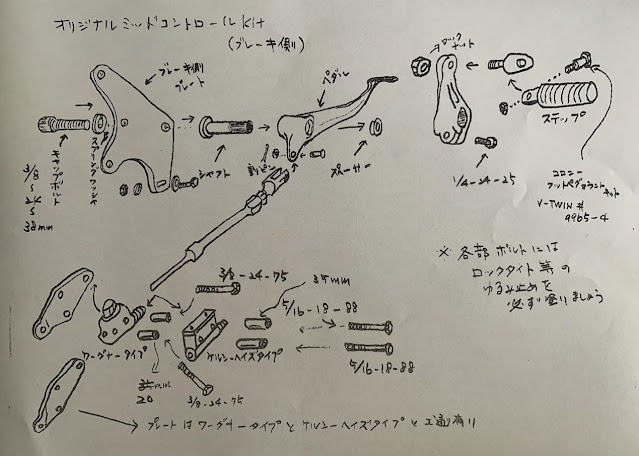 オリジナルミッドコントロールKit
(ブレーキ側)
ブレーキ側
プレート
ペダル
ロック
ナット
ステップ
スプリングワッシャ
キャップボルト
3/8
24
38mm
シャフト
割ピン
スペーサー
1/4-24-25
コロニー
フットペグマウントキット
V-TWIN #
9965-4
※ 各部ボルトには
ロックタイト等の
ゆるみ止めを
必ず塗りましょう
3/8-24-75
35mm
5/16-18-88
ワーグナータイプ
ケルシーヘイズタイプ
5/16-18-88
20
3/8-24-75
プレートはワーグナータイプとケルシーヘイズタイプと2通有り